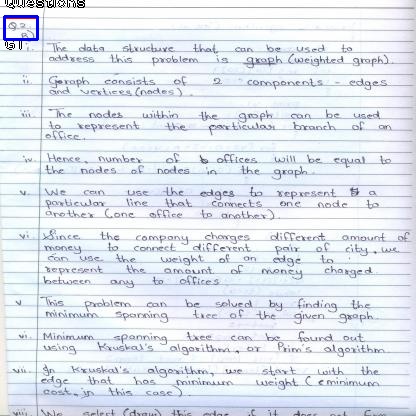 Questions
Q2.
B)
i. The data structure that can be used to
address this problem is graph (weighted graph).
ii. Graph consists of 2 components - edges
and vertices (nodes).
iii. The nodes within the graph can be used
to represent the particular branch of an
office.
iv. Hence, number of offices will be equal to
the nodes of nodes in the graph.
v. We can use the edges to represent a
particular line that connects one node to
another (one office to another).
vi. Since the company charges different amount of
money to connect different pair of city, we
can use the weight of an edge to
represent the amount of money charged
between any to offices.
v This problem can be solved by finding the
minimum spanning tree of the given graph.
vi. Minimum spanning tree can be found out
using Kruskal's algorithm, or Prim's algorithm.
vii. In Kruskal's algorithm, we start with the
edge that has minimum weight (minimum
cost, in this case).
viii. We select (draw) this edge if it does not form